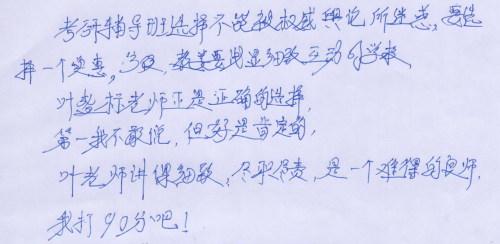 考研辅导班选择不能被权威舆论所迷惑，要选
择一个实惠，高效，教学要求是细致互动的学校，
叶老师正是正确的选择，
第一我不敢说，但好是肯定的，
叶老师讲得细致，尽职尽责，是一个难得的良师，
我打90分吧！